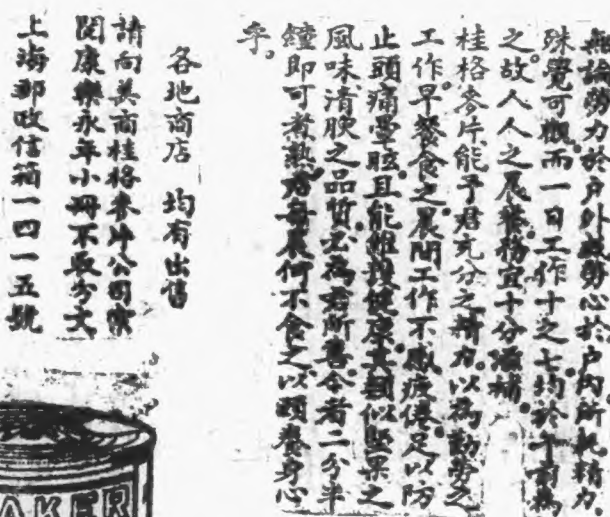 無論勞力於戶外或勞心於戶內所耗精力
殊覺可觀而一日工作十之七均於午前為
之故人人之晨餐務宜十分滋補
桂格麥片能予君充分之精力以為勤勞之
工作早餐食之晨間工作不感疲倦足以防
止頭痛暈眩且能維護健康其類似堅果之
風味清腴之品質尤為君所喜今者二分半
鐘即可煮熟君每晨何不食之以頤養身心
乎
各地商店 均有出售
請向美商桂格麥片公司索
閱康樂永年小冊不取分文
上海郵政信箱一四一五號
AKER